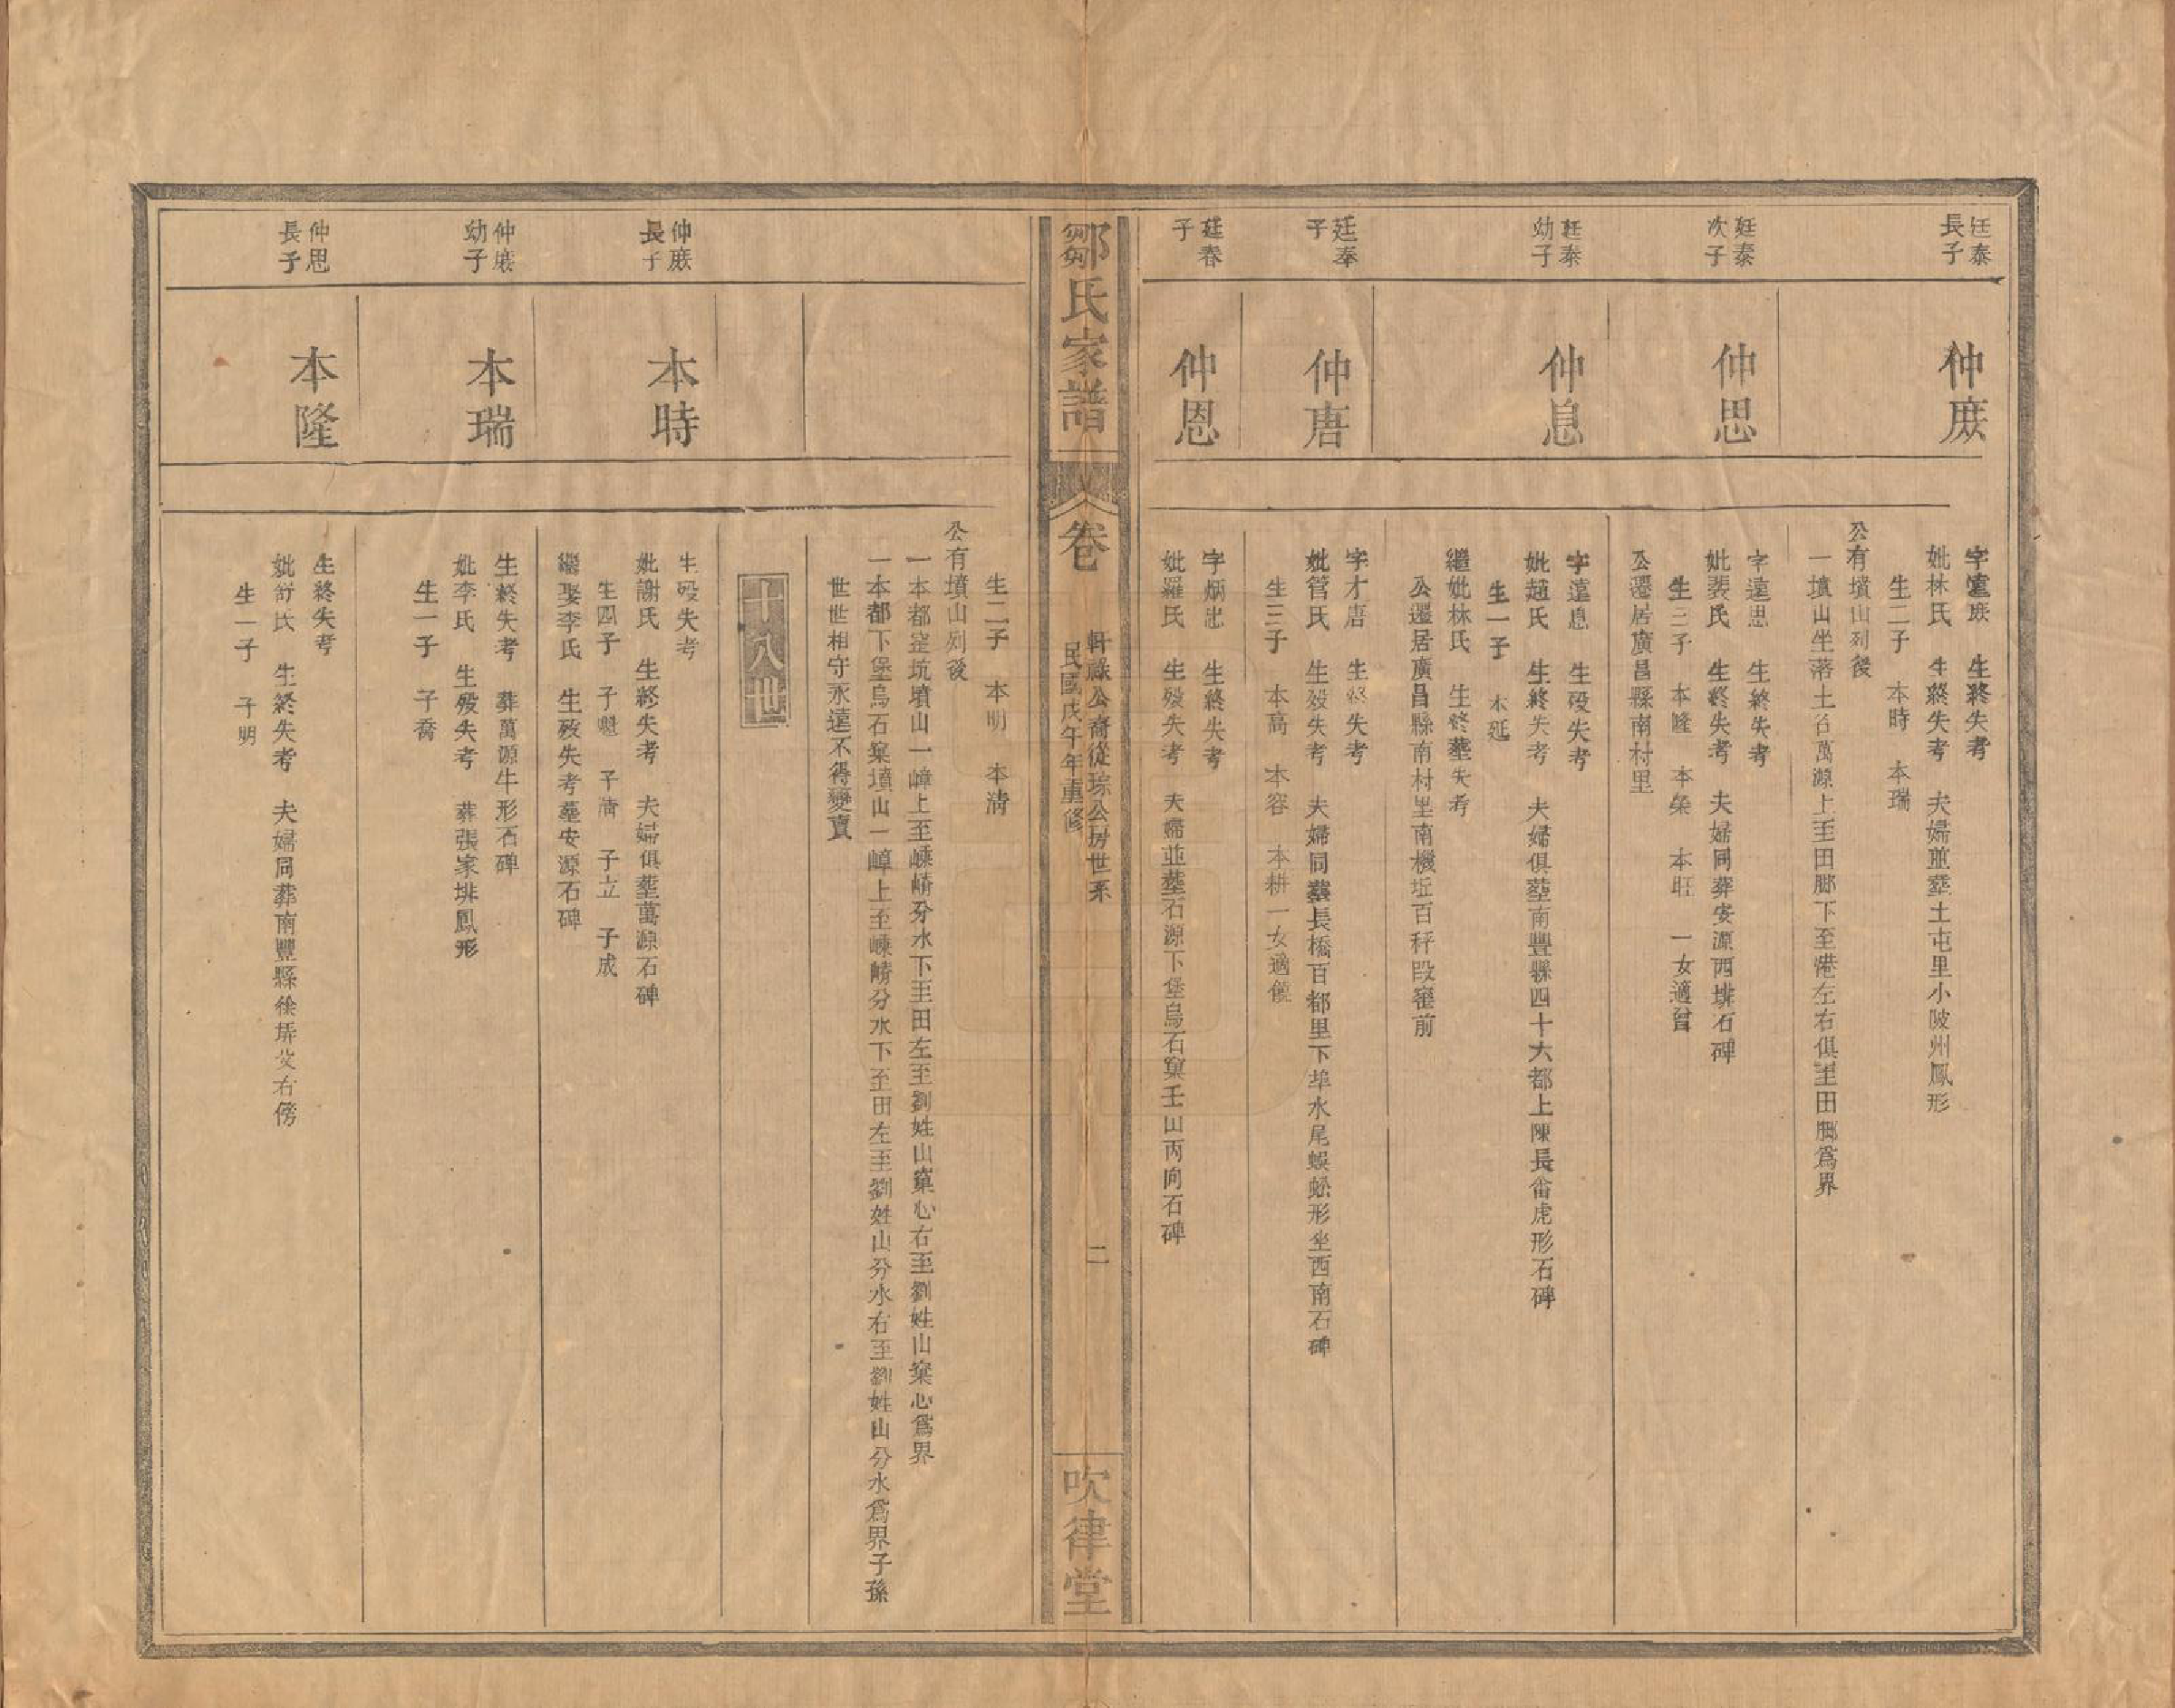 廷泰
長子
仲庶
字遠庶　生終失考
妣林氏　生終失考　夫婦並塟土屯里小陂州鳳形
生二子　本時　本瑞
公有墳山列後
一墳山坐落土名萬源上至田腳下至港左右俱至田腳爲界
廷泰
次子
仲思
字遠思　生終失考
妣裴氏　生終失考　夫婦同葬安源西排石碑
生三子　本隆　本榮　本旺　一女適曾
公遷居廣昌縣南村里
廷泰
幼子
仲息
字遠息　生殁失考
妣趙氏　生終失考　夫婦俱塟南豐縣四十六都上陳長畲虎形石碑
生一子　本延
繼妣林氏　生終塟失考
公遷居廣昌縣南村里南機坵百秤段窰前
廷奉
子
仲唐
字才唐　生終失考
妣管氏　生殁失考　夫婦同塟長橋百都里下埠水尾蜈蚣形坐西南石碑
生三子　本高　本容　本耕一女適饒
廷春
子
仲恩
字炳忠　生終失考
妣羅氏　生殁失考　夫婦並塟石源下堡烏石窠壬山丙向石碑
鄒氏家譜
卷
軒祿公裔從琮公房世系
民國戊午年重修
二
吹律堂
生二子　本明　本清
公有墳山列後
一本都窰坑墳山一嶂上至嵊嵴分水下至田左至劉姓山窠心右至劉姓山窠心爲界
一本都下堡烏石窠墳山一嶂上至嵊嵴分水下至田左至劉姓山分水右至劉姓山分水爲界子孫
世世相守永遠不得變賣
十八世
仲庶
長子
本時
生殁失考
妣謝氏　生終失考　夫婦俱塟萬源石碑
生四子　子魁　子清　子立　子成
繼娶李氏　生殁失考塟安源石碑
仲庶
幼子
本瑞
生終失考　葬萬源牛形石碑
妣李氏　生殁失考　葬張家排鳳形
生一子　子喬
仲思
長子
本隆
生終失考
妣舒氏　生終失考　夫婦同葬南豐縣徐坊父右傍
生一子　子明